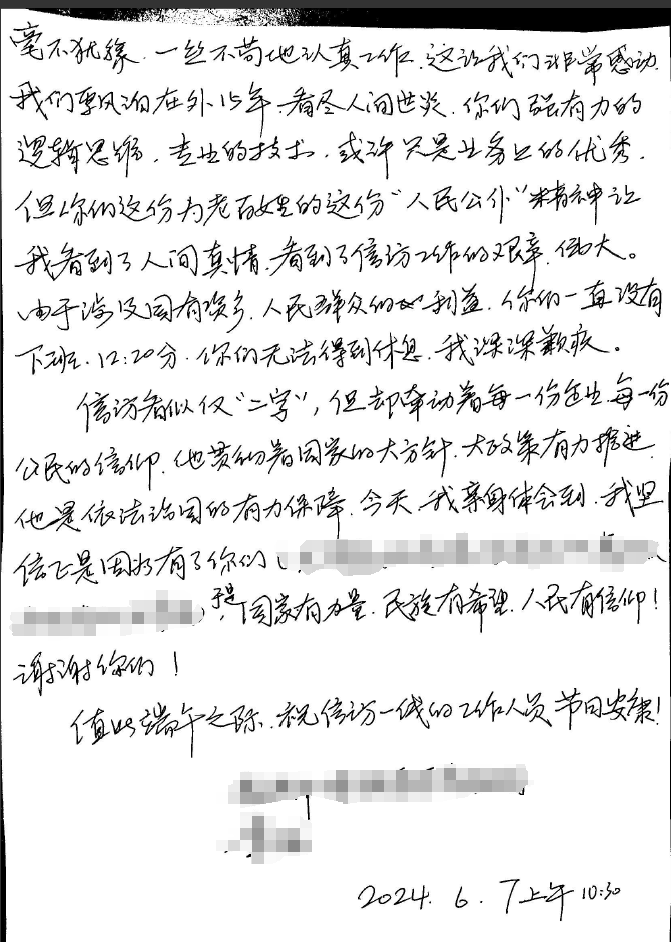 毫不犹豫、一丝不苟地认真工作,这让我们非常感动.
我们漂泊在外15年,看尽人间世炎,你们强有力的
逻辑思维,专业的技术,或许只是业务上的优秀,
但你们这份为老百姓的这份“人民公仆”精神让
我看到了人间真情,看到了信访工作的艰辛、伟大。
由于涉及国有资多、人民群众的利益,你们一直没有
下班,12:20分,你们无法得到休息,我深深歉疚。
信访看似仅“二字”,但却牵动着每一份民生,每一份
公民的信仰,他贯彻着国家的大方针、大政策有力推进,
他是依法治国的有力保障,今天,我亲身体会到,我坚
信正是因为有了你们(
于是,国家有力量,民族有希望,人民有信仰!
谢谢你们!
值此端午之际,祝信访一线的工作人员节日安康!
2024. 6. 7上午10:30